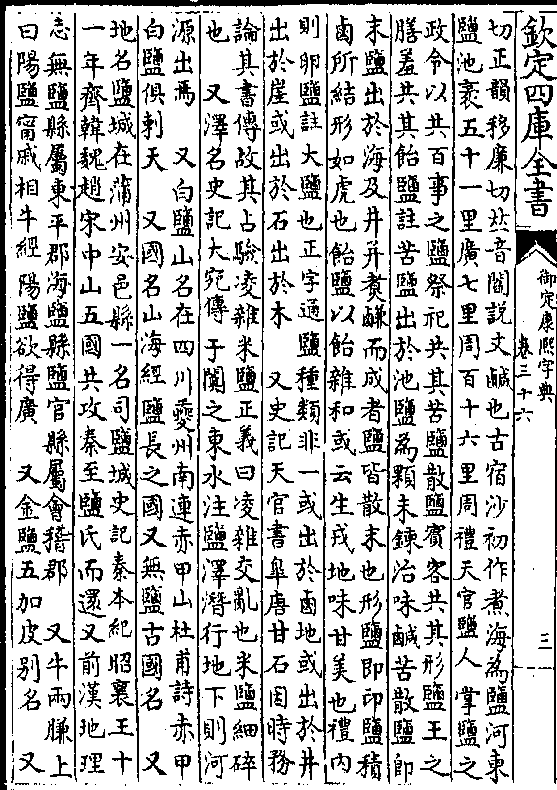 欽定四庫全書
御定康熙字典
卷三十六
三
切正韻移廉切𠀤音閻說文鹹也古宿沙初作煮海為鹽河東
鹽池袤五十一里廣七里周百十六里周禮天官鹽人掌鹽之
政令以共百事之鹽祭祀共其苦鹽散鹽賓客共其形鹽王之
膳羞共其飴鹽註苦鹽出於池鹽為顆未鍊治味鹹苦散鹽即
末鹽出於海及井并煑鹻而成者鹽皆散末也形鹽即印鹽積
鹵所結形如虎也飴鹽以飴雜和或云生戎地味甘美也禮內
則卵鹽註大鹽也正字通鹽種類非一或出於鹵地或出於井
出於崖或出於石出於木　又史記天官書臯唐甘石因時務
論其書傳故其占驗凌雜米鹽正義曰凌雜交亂也米鹽細碎
也　又澤名史記大宛傳于闐之東水注鹽澤潛行地下則河
源出焉　又白鹽山名在四川夔州南連赤甲山杜甫詩赤甲
白鹽俱刺天　又國名山海經鹽長之國又無鹽古國名　又
地名鹽城在蒲州安邑縣一名司鹽城史記秦本紀昭襄王十
一年齊韓魏趙宋中山五國共攻秦至鹽氏而還又前漢地理
志無鹽縣屬東平郡海鹽縣鹽官縣屬會稽郡　又牛兩膁上
曰陽鹽甯戚相牛經陽鹽欲得廣　又金鹽五加皮別名　又